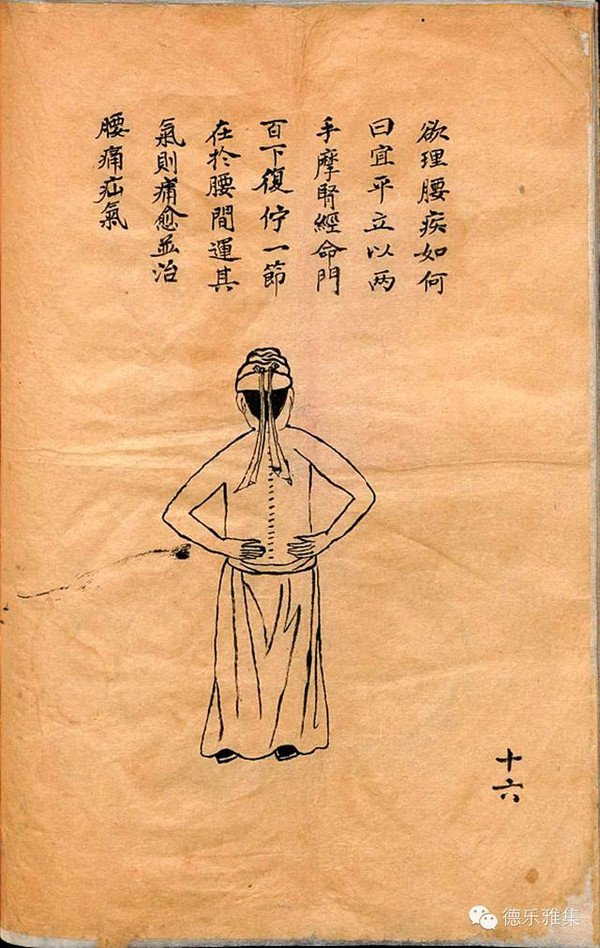 欲理腰疾如何
曰宜平立以两
手摩腎經命門
百下復佇一節
在於腰間運其
氣則痛愈並治
腰痛疝氣
十六
德乐雅集